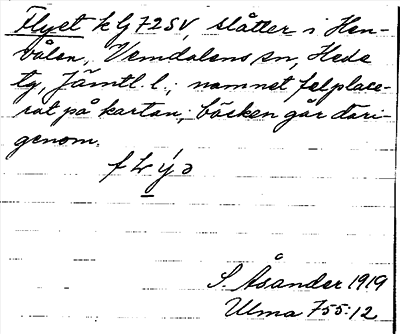 Flyet k Lj 72 SV, slåtter i Hen-
vålen, Vemdalens sn, Hede
tg, Jämtl. l.; namnet felplace-
rat på kartan; bäcken går däri-
genom.
S. Åsander 1919
Ulma 755:12